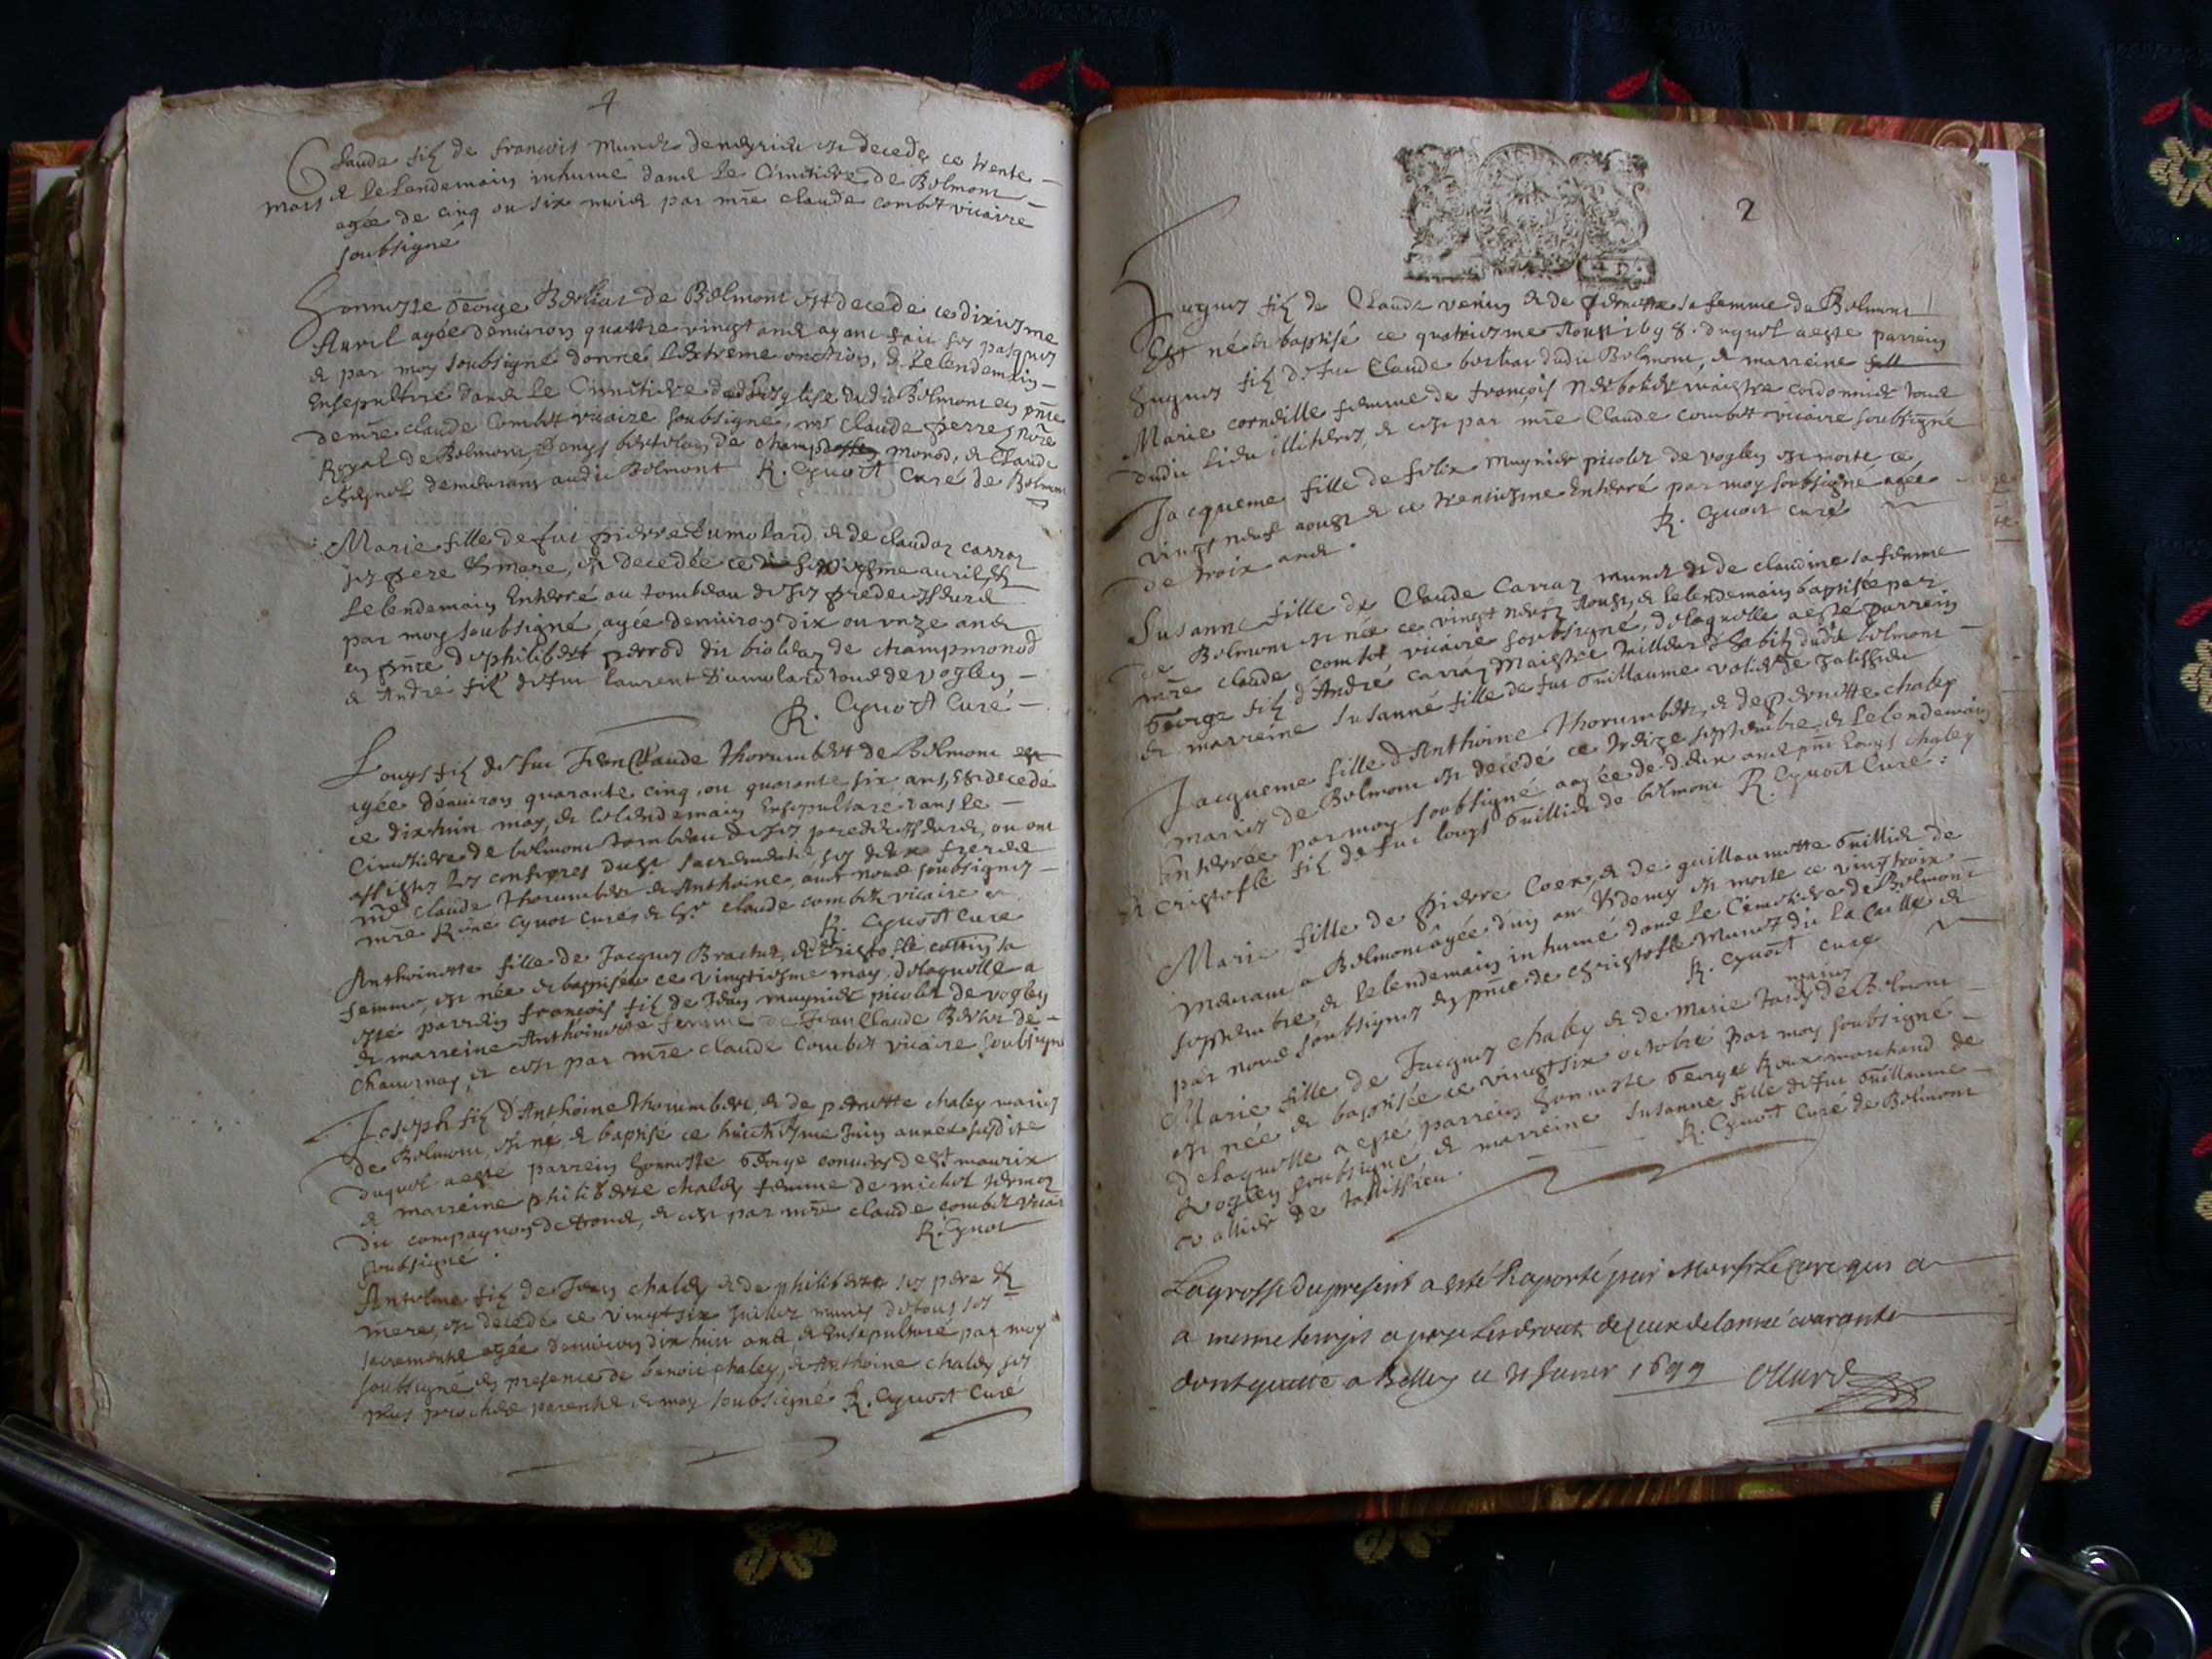 4
Claude filz de françois Munet est decedé ce trente
mars & le lendemain inhumé dans le Cimetiere de Belmont
agée de cinq ou six mois par mre claude combet vicaire
soubsigné
honneste George Berliat de Belmont est decedé ce dixiesme
Auril agée denuiron quattre vingt ans ayant fait ses pasques
& par moy soubsigné donné l'extreme onction, & le lendemain
Ensepulturé dans le Cimetiere de l'esglise dudit Belmont en pnce
de mre claude Combet vicaire soubsigné, mre Claude perret nore
Royal de Belmont, Denys de champ monod, & Claude
demeurans audit Belmont R. Cynost Curé de Belmont
Marie fille de fut pierre Dumolard & de claudaz carraz
ses pere & mere, est decedée ce auril, &
le lendemain Enterré au tombeau de ses predecesseurs
par moy soubsigné, agée denuiron dix ou vnze ans
en pnce de philibert perrod dit de champmonod
& André filz de fut laurent Dumolard tous de vogley
R. Cynost Curé
Louys filz de fut Jean Claude Thorumbert de Belmont
agée denuiron quarante cinq, ou quarante six ans, est decedé
ce dixhuit may, & le lendemain Ensepulturé dans le
Cimetiere de belmont tombeau de ses predecesseurs, ou ont
assistes les confreres du st sacrement & ses deux freres
me Claude Thorumbert & Anthoine, auec nous soubsignes
mre René Cynost curé, & sr claude combet vicaire
R. Cynost Curé
Anthoinette fille de Jacques Brachet, & de cottin sa
femme, est née & baptisée ce vingtiesme may, de laquelle a
esté parrein françois filz de Jean mugnier picolet de vogley
& marreine Anthoinette femme de Jean Claude de
& cest par mre claude Combet vicaire soubsigné
Joseph filz d'Anthoine Thorumbert, & de pernette chaley maries
de Belmont, est né & baptisé ce huictiesme Juin année susdite
duquel a esté parrein honneste George de st maurix
& marreine philiberte chaley femme de michel
du compagnon de & cest par mre claude combet vicaire
soubsigné. R. Cynost
Antelme filz de Jean chaley & de philiberte ses pere &
mere, est decedé ce vingt six Juillet munis de tous ses
sacrements agée denuiron dix huit ans, & Ensepulturé par moy
soubsigné en presence de benoit chaley, & Anthoine chaley ses
plus proches parents & moy soubsigné R. Cynost Curé
2
Hugues filz de Claude venin & de pernette sa femme de Belmont
Est né & baptisé ce quatriesme Aoust 1698. duquel a esté parrein
hugues filz de fut Claude berliat dudit Belmont, & marreine
Marie corneille femme de françois maistre cordonnier tous
dudit lieu illiteres, & cest par mre Claude combet vicaire soubsigné
Jacqueme fille de felix mugnier picolet de vogley est morte ce
vingt neuf aoust & ce trentiesme Enterré par moy soubsigné agée
de trois ans. R. Cynost curé
Susanne fille de Claude Carraz munet & de claudine sa femme
de Belmont est née ce vingt neufz Aoust, & le lendemain baptisée par
mre claude combet vicaire soubsigné, de laquelle a esté parrein
George filz d'André carraz Maistre tailleur d'habitz dudit belmont
& marreine Susanne fille de fut Guillaume de talissieu
Jacqueme fille d'Anthoine Thorumbert, & de pernette chaley
maries de Belmont est decedé ce treize septembre & le lendemain
Enterrée par moy soubsigné aagée de deux ans pnt Louys chaley
& cristofle filz de fut louys Guillier de belmont R. Cynost Curé:
Marie fille de pierre Coex, & de guillaumette Guillier de
a Belmont agée d'un an & demy est morte ce vingt trois
septembre, & le lendemain inhumé dans le Cimetiere de Belmont
par nous soubsignes en pnce de christofle Munet dit la &
R. Cynost curé
Marie fille de Jacques chaley & de Marie Jardy maries de Belmont
est née & baptisée ce vingt six octobre par moy soubsigné
de laquelle a esté parrein honneste George Roux marchand de
vogley soubsigné, & marreine Susanne fille de fut Guillaume
de tallissieu. R. Cynost Curé de Belmont
La grosse du present a esté Raporté par Monsr Le Curé qui a
a mesme temps a payé Les droits de ceux de lannée courante
dont quitte a Belley ce 31 Janvier 1699